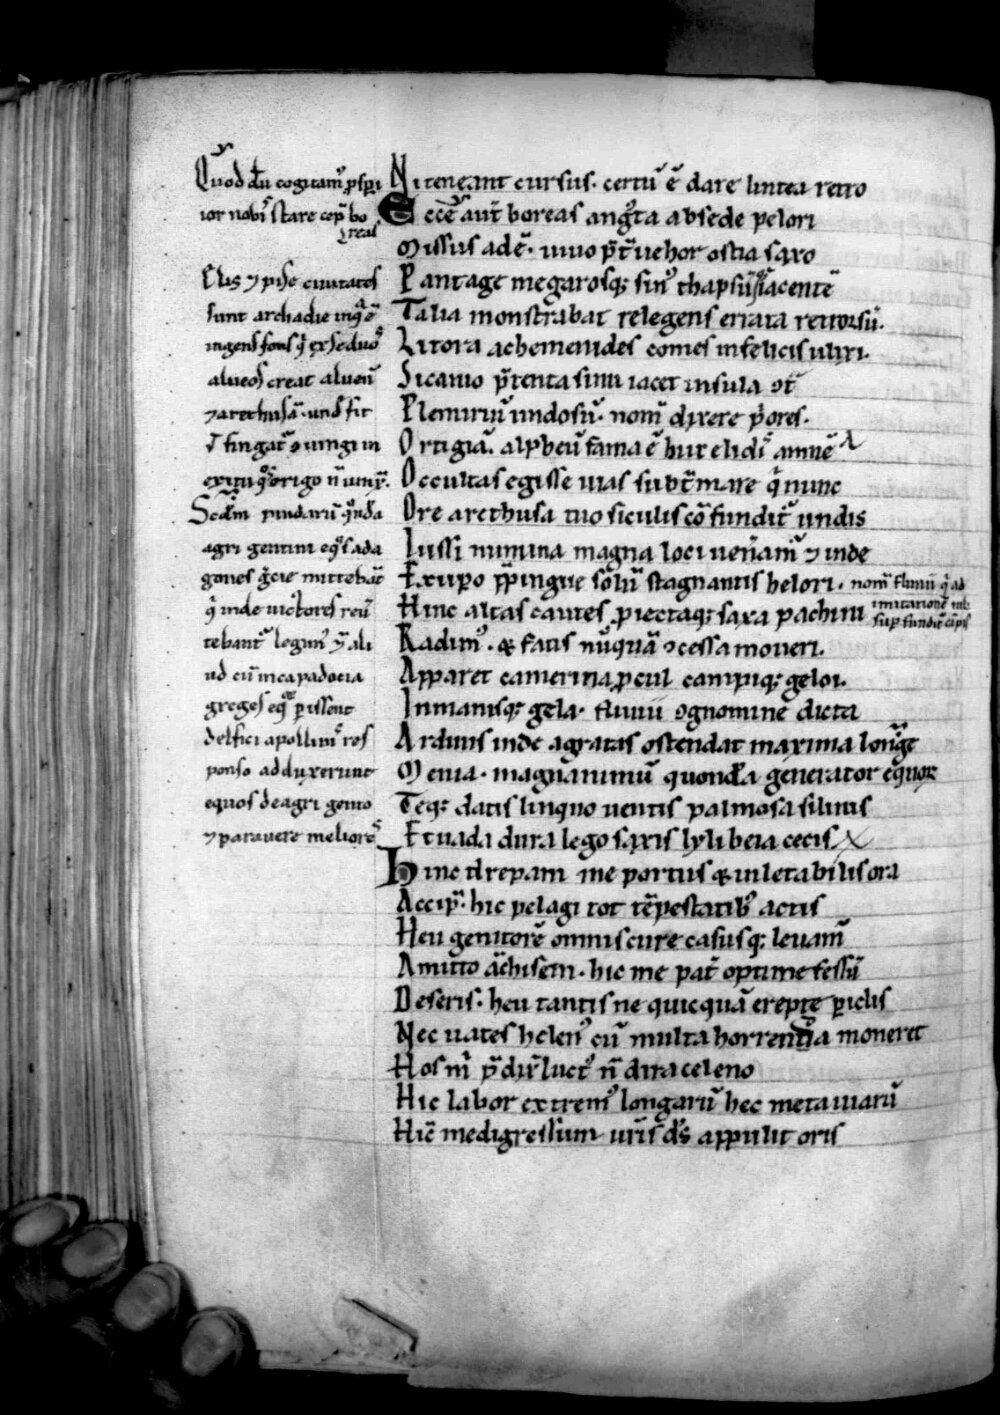 Quod dū cogitam᷑ ꝓsꝑi
ior nob᷒ flare cep̄ bo
reas
Elis ⁊ pise ciuitates
sunt archadie in q͛ ē
ingens fons q͛ ex se duos
alueos creat alueū
⁊ arethusā· und̄ fit
exitu qͦ origo n̄ uniṽ.
Scd̄m pindarū qͦnda
agri gentini eqͦs ad a
gones gͣcie mittebāt
qͥ inde uictores reū
tebant᷑ legim᷒ ⁊ ali
ud cū in capadocia
greges eqͦꝝ perissent
delfici apollinis res
ponso adduxerunt
equos de agri gento
⁊ parauere meliores
Ni teneant cursus· certū ē dare lintea retro
Ecce aūt boreas angͧsta ab sede pelori
Missus adē· uiuo p̄t̄uehor ostia saxo
Pantagie megarosq; sin᷒ thapsūq; iacentē
Talia monstrabat relegens errata retrorsū·
Litora achemenides comes infelicis ulixi·
Sicanio p̄tenta sinu iacet insula ↄt͛
Plemiriū undosū· nom̄ dixere p͛ores·
Ortigiā· alpheū fama ē huc elidis amnē
Occultas egisse uias subt̄ mare q͛ nunc
Ore arethusa tuo siculis cōfundit᷑ undis
Iussi numina magna loci uen̄am᷑ ⁊ inde
Exupo p̄pingue solū stagnantis helori· nom̄ fluuii q͛ ad
imitationē nili
sup̄fundit᷑ cāpis
Hinc altas cautes ꝓiectaq; saxa pachini
Radim᷒· & fatis nūquā ↄcessa moueri·
Apparet camerina ꝓcul campiq; geloi·
Inmanisq; gela· fluuii ↄgnomine dicta
Arduus inde agragas ostendat maxima longe
Menia· magnanimū quondā generator equoꝝ
Teq; datis linquo uentis palmosa silinus
Et uada dura lego saxis lylibeia cecis
Hinc drepani me portus & inletabilis ora
Accip̄· hic pelagi tot tēpestatib᷒ actis
Heu genitorē omnis cure casusq; leuam̄
Amitto āchisem· hic me pat̄ optime fessū
Deseris· heu tantis ne quicquā erepte ꝑiclis
Nec uates helen᷒ cū multa horrenda moneret
Hos m̄ p̄dix̄ luct᷒ n̄ dira celeno
Hic labor extrem᷒ longarū hec meta uiarū
Hīc me digressum ur̄is ds̄ appulit oris